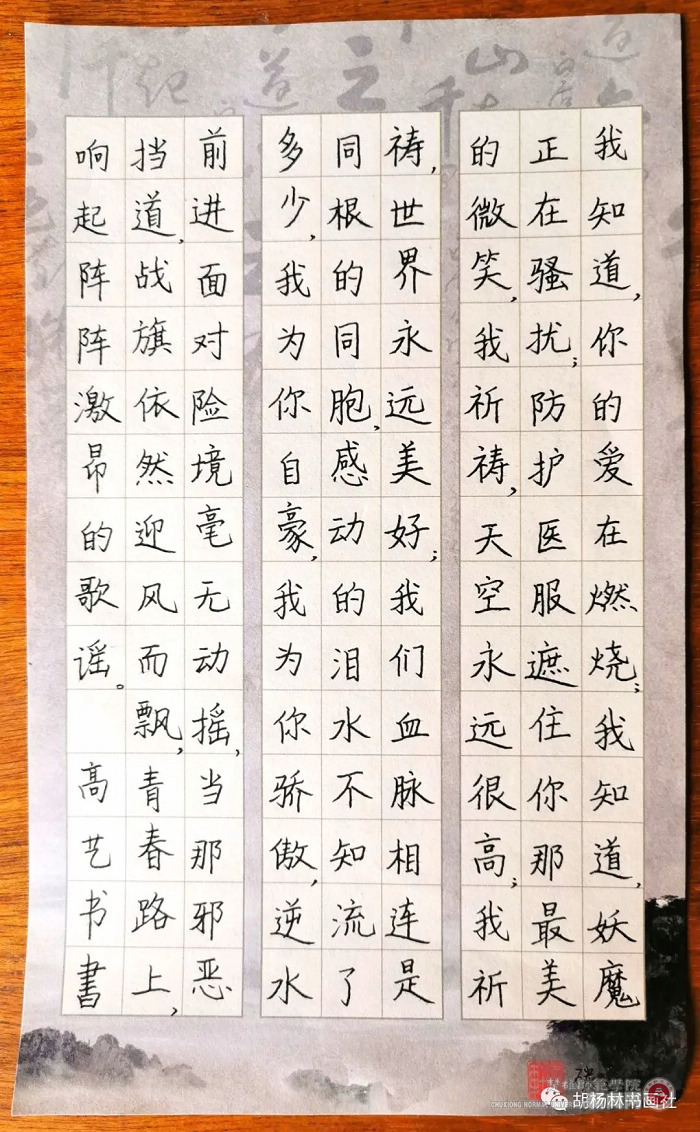 我知道，你的爱在燃烧；我知道，妖魔
正在骚扰；防护医服遮住你那最美
的微笑，我祈祷，天空永远很高；我祈
祷，世界永远美好；我们血脉相连是
同根的同胞，感动的泪水不知流了
多少，我为你自豪，我为你骄傲，逆水
前进面对险境毫无动摇，当那邪恶
挡道，战旗依然迎风而飘，青春路上，
响起阵阵激昂的歌谣。 高艺书書
CHUXIONG NORMAL
胡杨林书画社